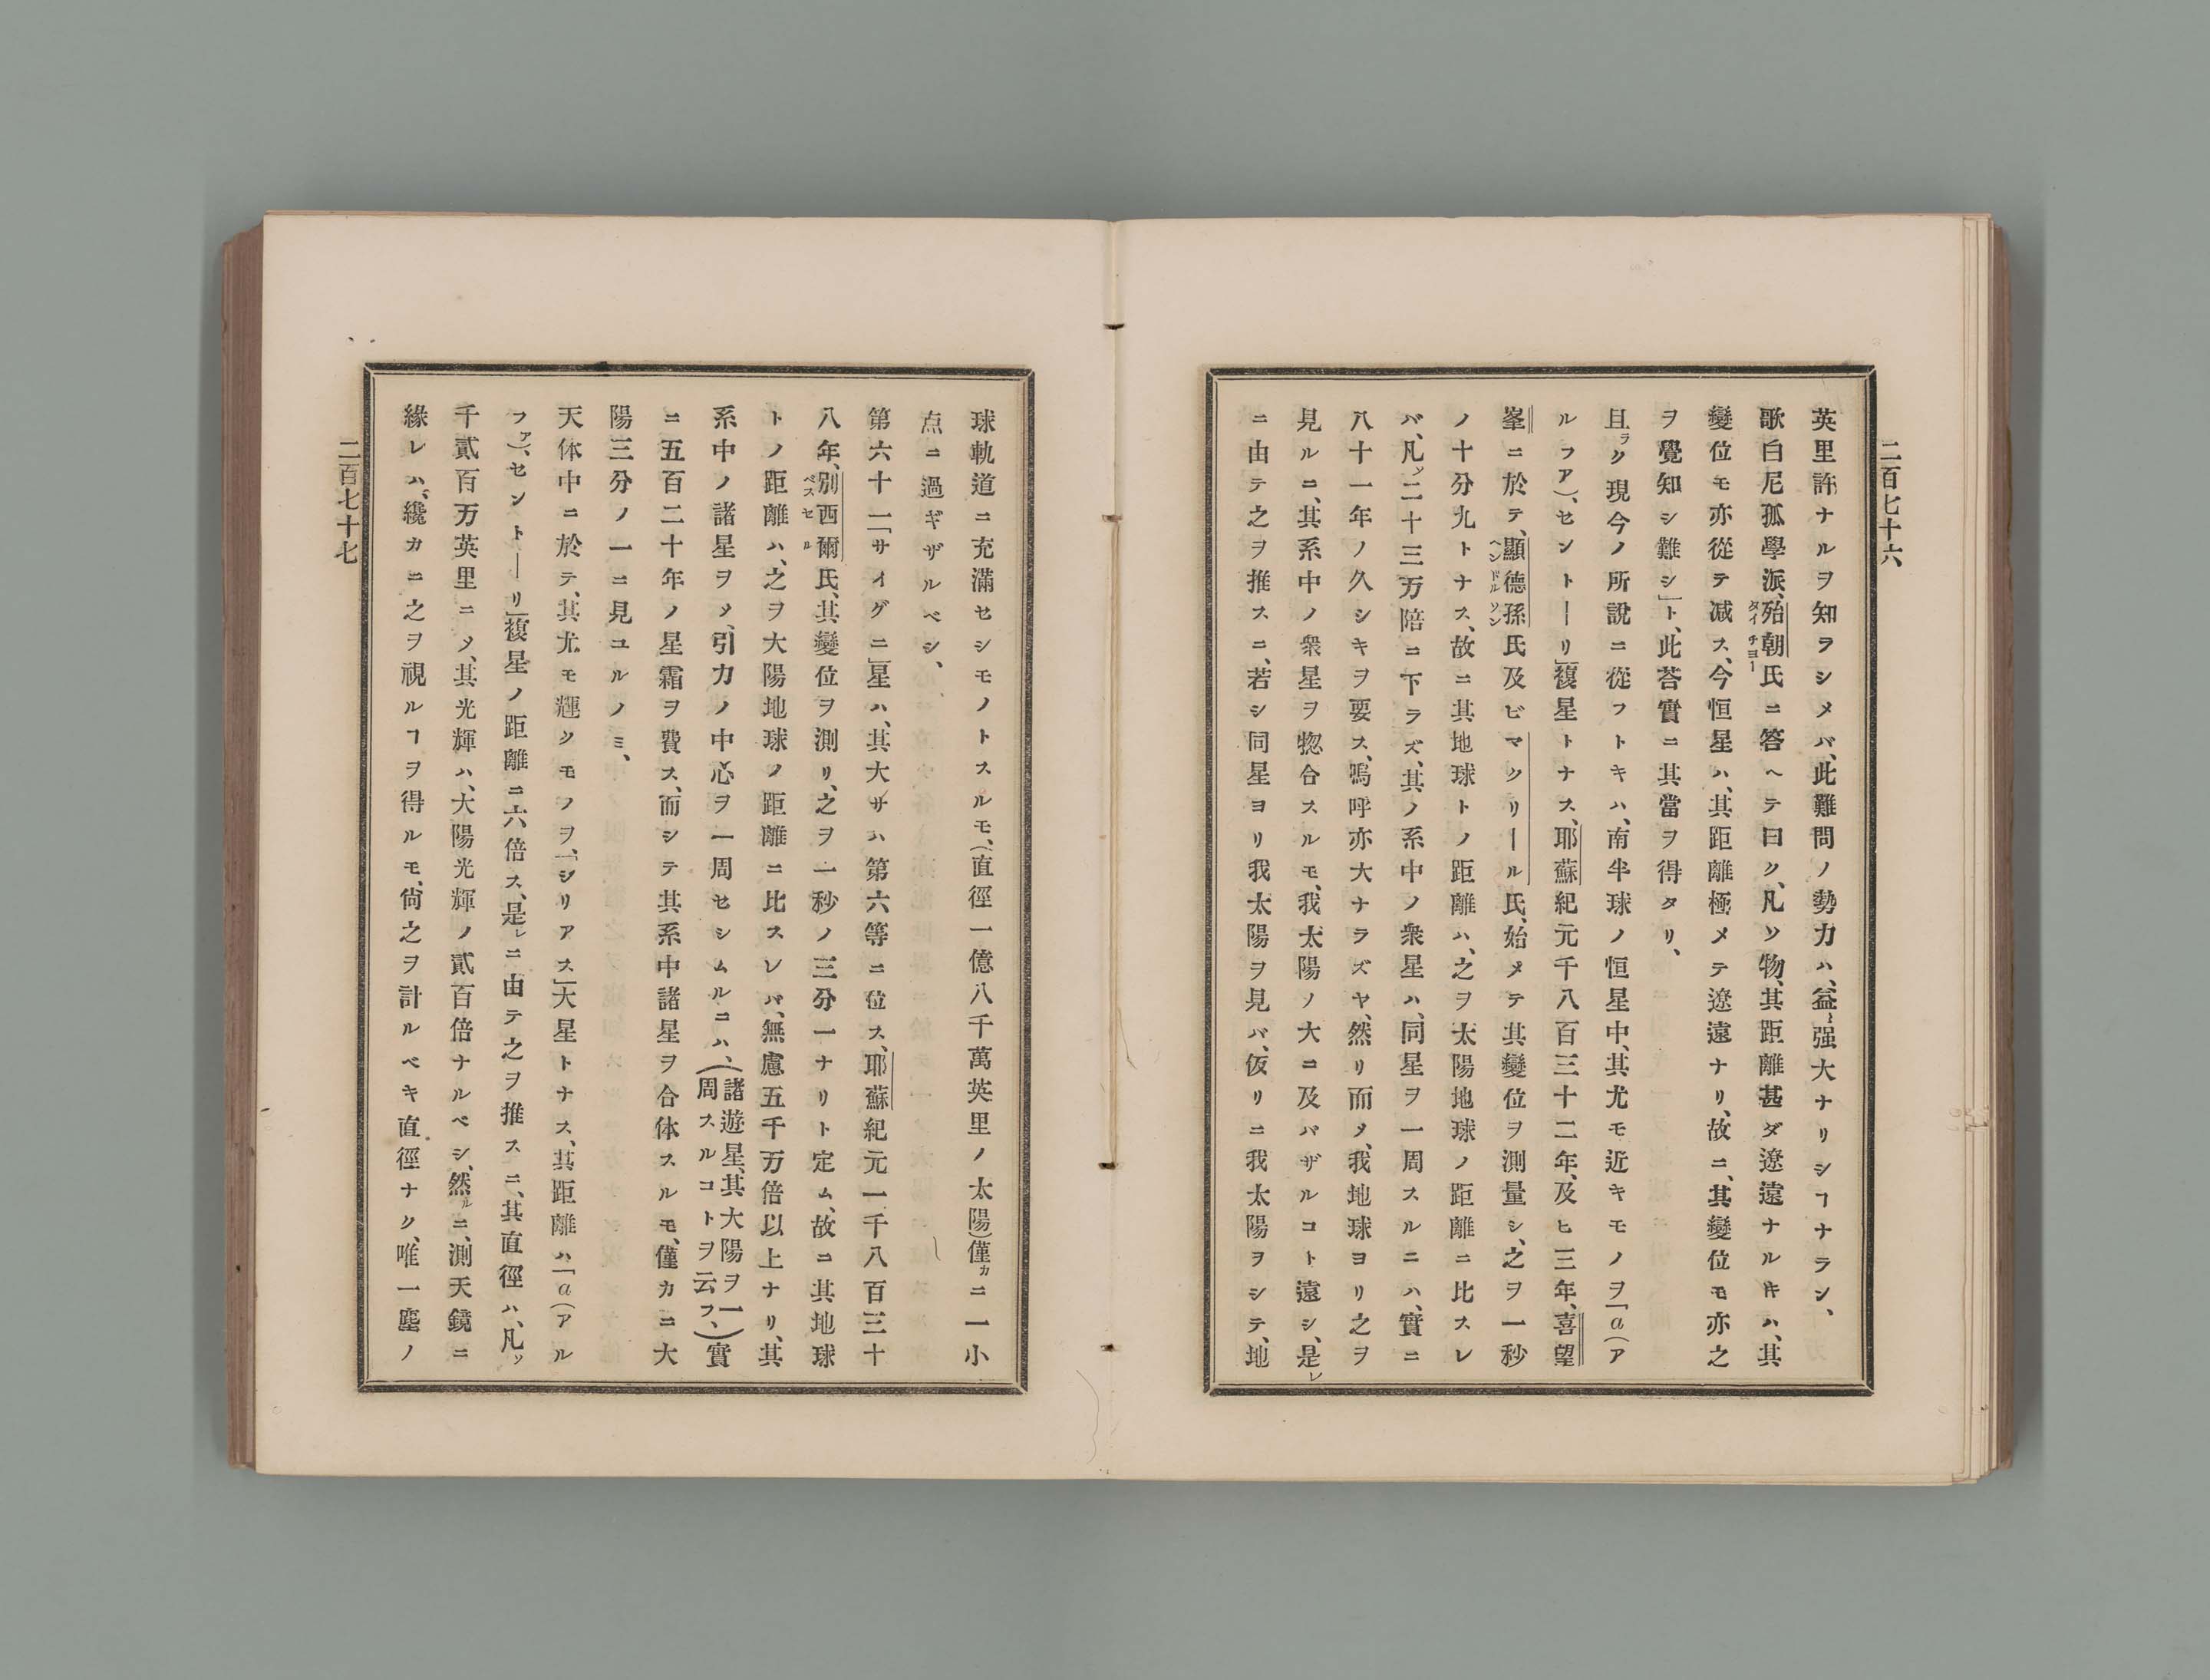 二百七十六
英里許ナルヲ知ラシメバ、此難問ノ勢力ハ、益〻强大ナリシヿナラン、
歌白尼孤學派、殆朝氏ニ答ヘテ曰ク、凡ソ物、其距離甚ダ遼遠ナルキハ、其
タイチヨー
變位モ亦從テ减ス、今恒星ハ、其距離極メテ遼遠ナリ、故ニ、其變位モ亦之
ヲ覺知シ難シ」ト、此荅實ニ其當ヲ得タリ、
且ラク現今ノ所說ニ從フトキハ、南半球ノ恒星中、其尤モ近キモノヲ「α(ア
ルファ)、センタｰリ」複星トナス、耶蘇紀元千八百三十二年、及ヒ三年、喜望
峯ニ於テ、顯德孫氏及ビマクリｰル氏、始メテ其變位ヲ測量シ、之ヲ一秒
ヘンドルソン
ノ十分九トナス、故ニ其地球トノ距離ハ、之ヲ太陽地球ノ距離ニ比スレ
バ、凡ソ二十三万陪ニ下ラズ、其ノ系中ノ衆星ハ、同星ヲ一周スルニハ、實ニ
八十一年ノ久シキヲ要ス、嗚呼亦大ナラズヤ、然リ而〆、我地球ヨリ之ヲ
見ルニ、其系中ノ衆星ヲ惣合スルモ、我太陽ノ大ニ及バザルコト遠シ、是レ
ニ由テ之ヲ推スニ、若シ同星ヨリ我太陽ヲ見バ、仮リニ我太陽ヲシテ、地
球軌道ニ充滿セシモノトスルモ、(直徑一億八千萬英里ノ太陽)僅カニ一小
点ニ過ギザルベシ、
第六十一「サイグニ」星ハ、其大サハ第六等ニ位ス、耶蘇紀元一千八百三十
八年、別西爾氏、其變位ヲ測リ、之ヲ一秒ノ三分一ナリト定ム、故ニ其地球
ベスセル
トノ距離ハ、之ヲ大陽地球ノ距離ニ比スレバ、無慮五千万倍以上ナリ、其
系中ノ諸星ヲ〆、引力ノ中心ヲ一周セシムルニハ、(諸遊星、其大陽ヲ一周スルコトヲ云フ、)實
ニ五百二十年ノ星霜ヲ費ス、而シテ其系中諸星ヲ合体スルモ、僅カニ大
陽三分ノ一ニ見ユルノミ、
天体中ニ於テ、其尤モ輝ツモノヲ、「シリアス」大星トナス、其距離ハ「α(アル
ファ)、センタｰリ」複星ノ距離ニ六倍ス、是レニ由テ之ヲ推スニ、其直徑ハ、凡ソ
千貳百万英里ニ〆、其光輝ハ、大陽光輝ノ貳百倍ナルベシ、然ルニ、測天鏡ニ
緣レハ、纔カニ之ヲ視ルヿヲ得ルモ、尙之ヲ計ルベキ直徑ナク、唯一塵ノ
二百七十七